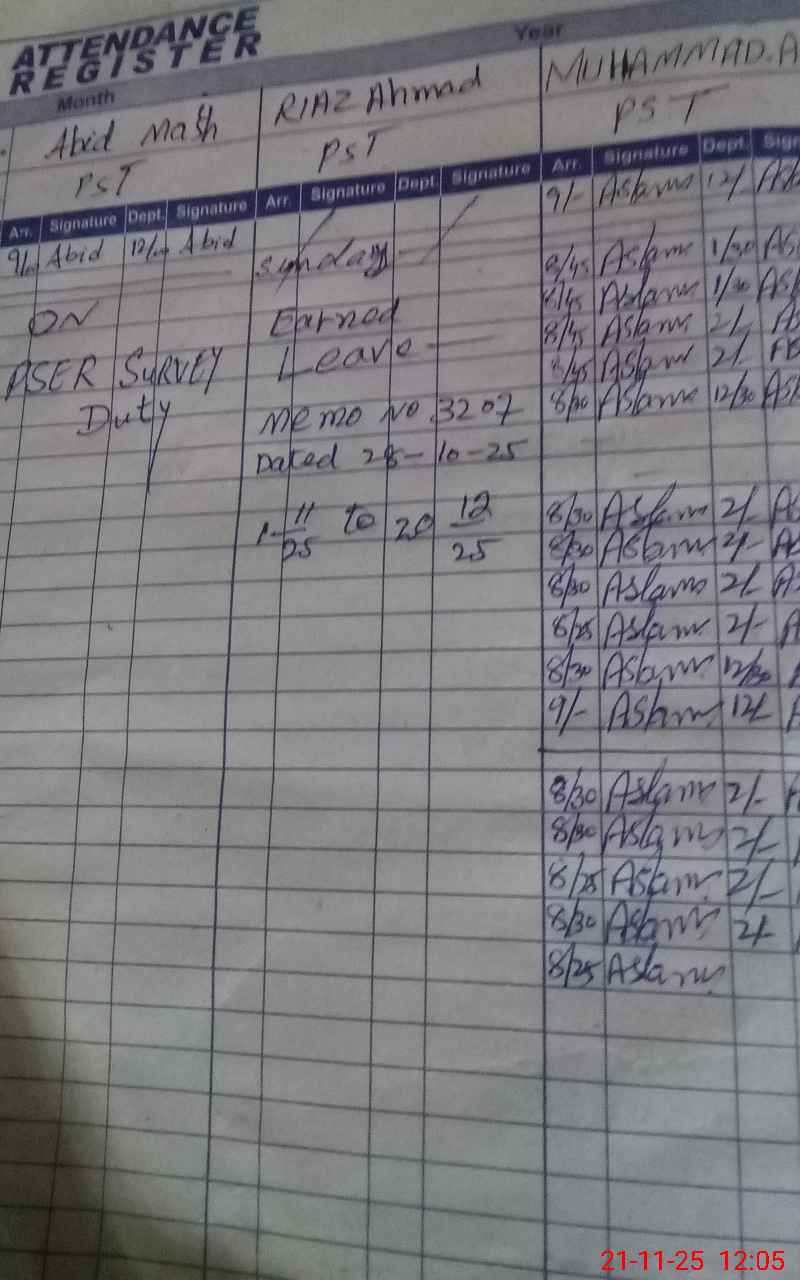 ATTENDANCE
REGISTER
Month
Year
Abid Masih
PST
RIAZ Ahmad
PST
MUHAMMAD. A
PST
Arr. Signature Dept. Signature Arr. Signature Dept. Signature Arr. Signature Dept. Sign
9/- Aslam 12/- Asla
9/00 Abid 12/00 Abid
Sunday
8/45 Aslam 1/30 As
ON
Earned
8/45 Aslam 1/30 As
8/45 Aslam 2/- As
ASER SURVEY
Leave
8/45 Aslam 2/- As
Duty
Memo No 3207
8/30 Aslam 12/30 As
Dated 28-10-25
1-11/25 to 20 12/25
8/30 Aslam 2/- As
8/30 Aslam 2/- As
8/30 Aslam 2/- As
8/25 Aslam 2/- A
8/30 Aslam 12/30 A
9/- Aslam 12/- A
8/30 Aslam 2/- A
8/30 Aslam 2/-
8/25 Aslam 2/-
8/30 Aslam 2/-
8/25 Aslam
21-11-25 12:05